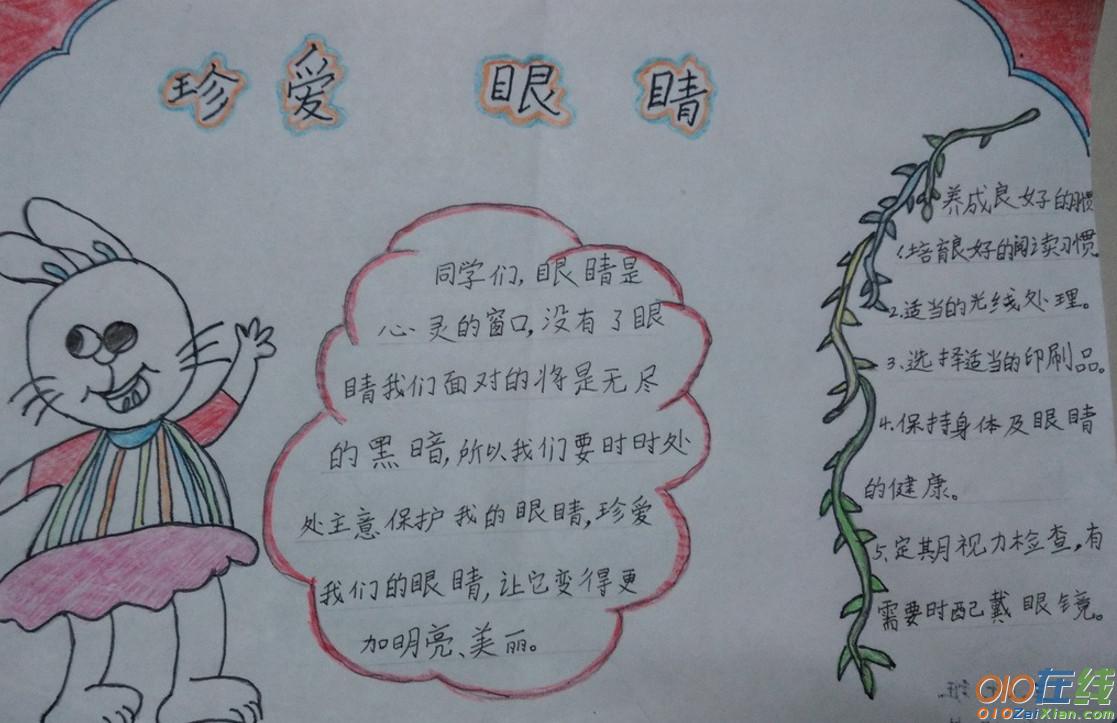 珍爱 眼睛
同学们,眼睛是
心灵的窗口,没有了眼
睛我们面对的将是无尽
的黑暗,所以我们要时时处
处主意保护我的眼睛,珍爱
我们的眼睛,让它变得更
加明亮、美丽。
养成良好的惯
1.培育良好的阅读习惯
2.适当的光线处理。
3、选择适当的印刷品。
4、保持身体及眼睛
的健康。
5、定期视力检查,有
需要时配已戴眼镜。
010在线
010ZaiXian.com